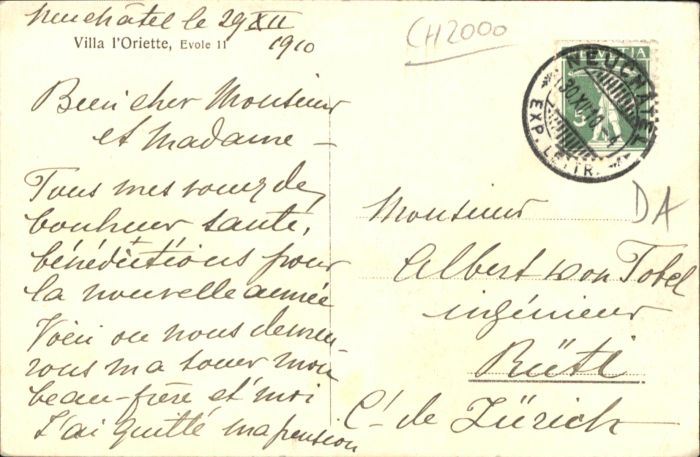 Neuchâtel le 29 XII
1910
Villa l'Oriette, Evole 11
Bien cher Monsieur
et Madame –
Tous mes vœux de
bonheur santé,
bénédictions pour
la nouvelle année
Voici ou nous demeu-
rons ma sœur mon
beau-frère et moi
J'ai quitté ma pension
CH2000
HELVETIA
5
NEUCHATEL
30.XII.10.
EXP. LETTR.
DA
Monsieur
Albert von Tobel
ingénieur
Rüti
Ct. de Zürich